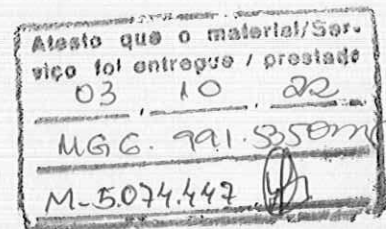 Atesto que o material/Ser-
viço foi entregue / prestado
03, 10, 22
M-5.074.447